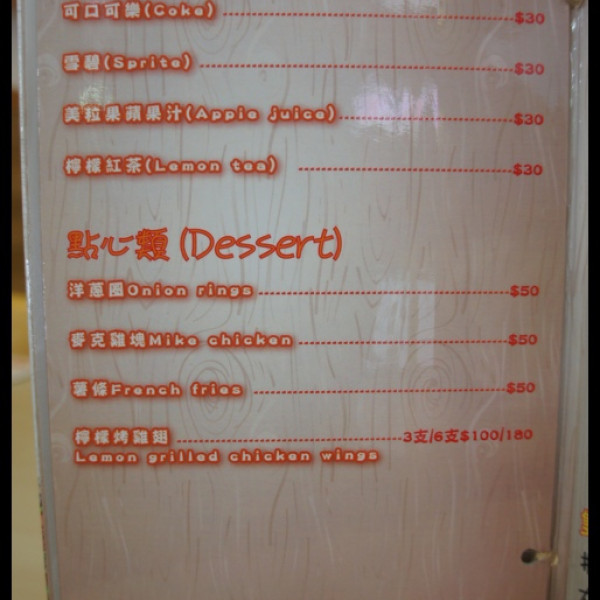 可口可樂(Coke) $30
雪碧(Sprite) $30
美粒果蘋果汁(Apple juice) $30
檸檬紅茶(Lemon tea) $30
點心類 (Dessert)
洋蔥圈Onion rings $50
麥克雞塊Mike chicken $50
薯條French fries $50
檸檬烤雞翅 3支/6支$100/180
Lemon grilled chicken wings